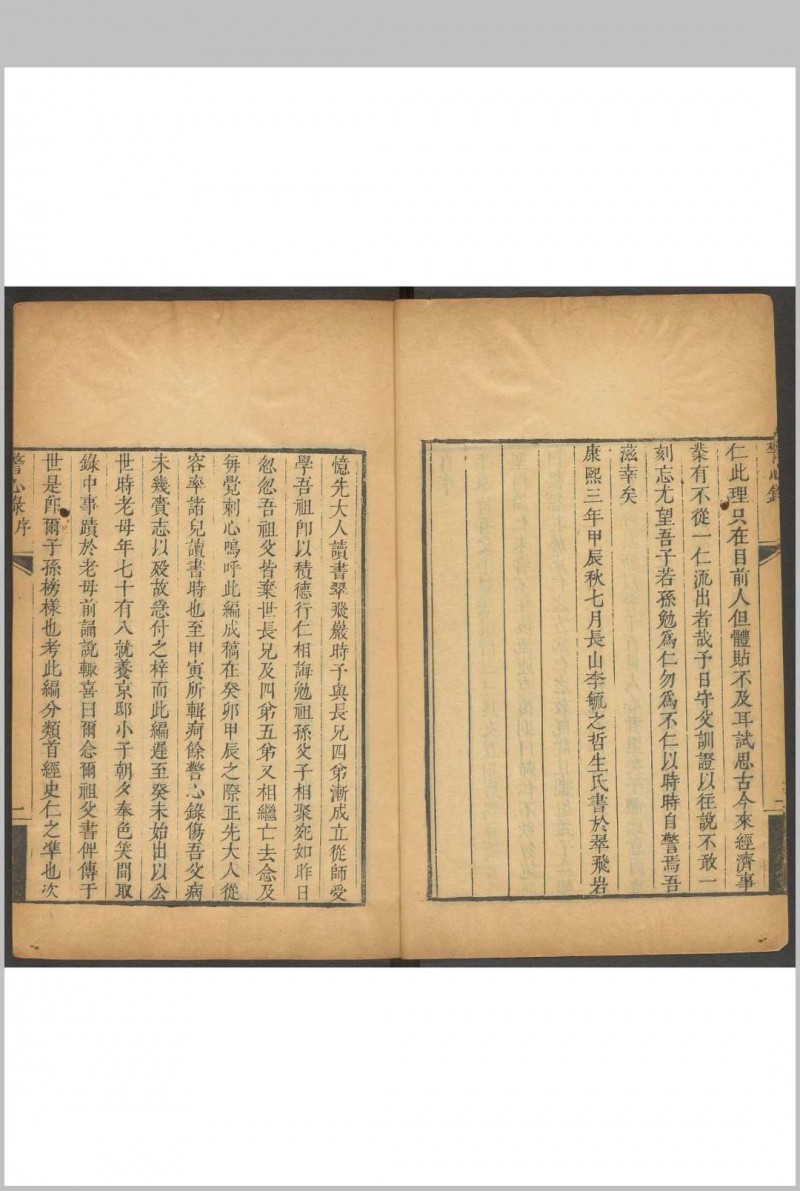 仁此理只在目前人但體貼不及耳試思古今來經濟事
業有不從一仁流出者哉予日守父訓證以往說不敢一
刻忘尤望吾子若孫勉爲仁勿爲不仁以時時自警焉吾
滋幸矣
康熙三年甲辰秋七月長山李毓之哲生氏書於翠飛岩
憶先大人讀書翠飛巖時予與長兄四弟漸成立從師受
學吾祖卽以積德行仁相誨勉祖孫父子相聚宛如昨日
忽忽吾祖父皆棄世長兄及四弟五弟又相繼亡去念及
每覺刺心嗚呼此編成稿在癸卯甲辰之際正先大人從
容率諸兒讀書時也至甲寅所輯痾餘警心錄傷吾父病
未幾賫志以殁故急付之梓而此編遲至癸未始出以公
世時老母年七十有八就養京邸小子朝夕奉色笑間取
錄中事蹟於老母前誦說輙喜曰爾念爾祖父書俾傳于
世是卽爾子孫榜樣也考此編分類首經史仁之準也次
警心錄 序
二